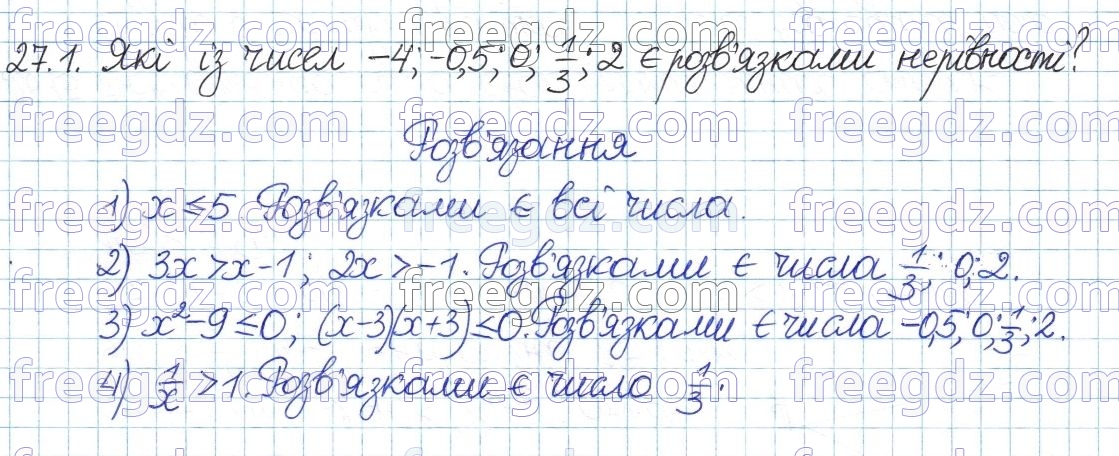 27.1. Які із чисел −4; −0,5; 0; 1/3; 2 є розв'язками нерівності?
Розв'язання
1) x ≤ 5. Розв'язками є всі числа.
2) 3x > x − 1; 2x > −1. Розв'язками є числа 1/3; 0; 2.
3) x² − 9 ≤ 0; (x − 3)(x + 3) ≤ 0. Розв'язками є числа −0,5; 0; 1/3; 2.
4) 1/x > 1. Розв'язками є число 1/3.
freegdz.com